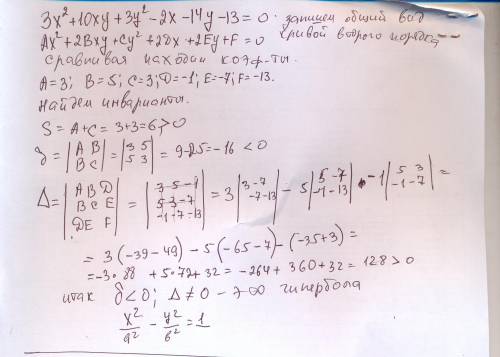 3x² + 10xy + 3y² - 2x - 14y - 13 = 0. запишем общий вид
Ax² + 2Bxy + Cy² + 2Dx + 2Ey + F = 0 кривой второго порядка
сравнивая находим коэф-ты.
A=3; B=5; C=3; D=-1; E=-7; F=-13.
Найдем инварианты.
S = A+C = 3+3=6 > 0
δ = |A B; B C| = |3 5; 5 3| = 9-25 = -16 < 0
Δ = |A B D; B C E; D E F| = |3 5 -1; 5 3 -7; -1 -7 -13| = 3 |3 -7; -7 -13| - 5 |5 -7; -1 -13| -1 |5 3; -1 -7| =
= 3(-39-49) - 5(-65-7) - (-35+3) =
= -3·88 + 5·72 + 32 = -264 + 360 + 32 = 128 > 0
итак δ < 0; Δ ≠ 0 - гипербола
x²/a² - y²/b² = 1